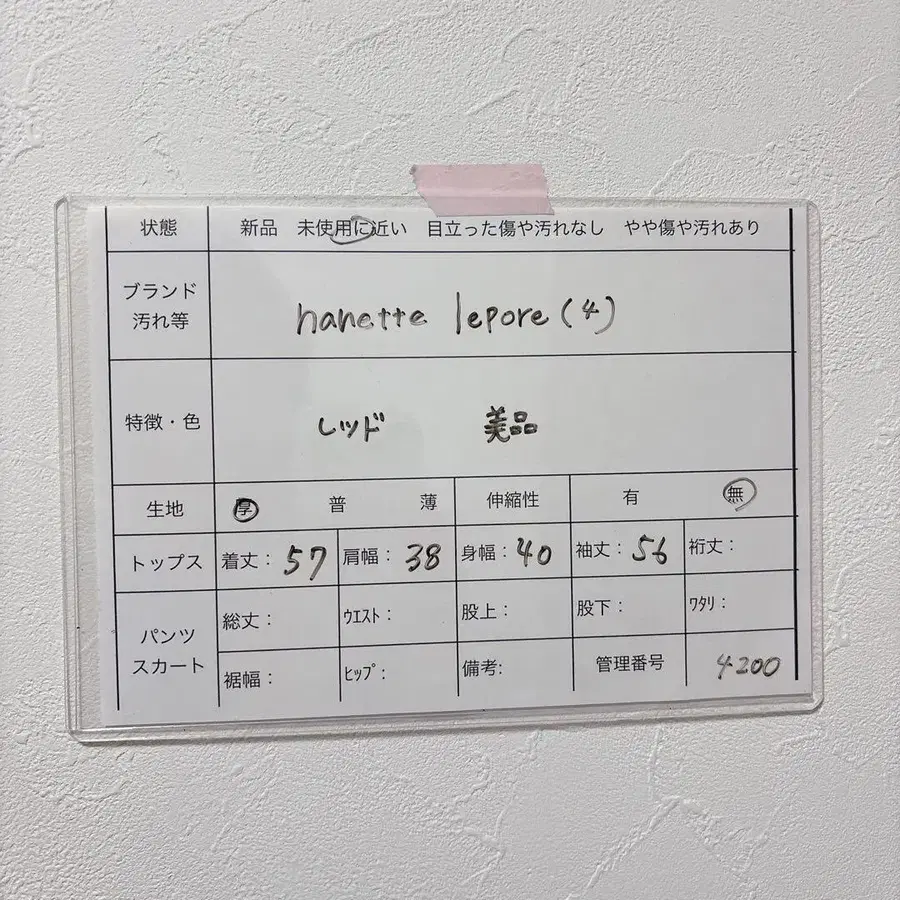 状態 新品 未使用に近い 目立った傷や汚れなし やや傷や汚れあり
ブランド
汚れ等
hanette lepore (4)
特徴・色 レッド 美品
生地 厚 普 薄 伸縮性 有 無
トップス 着丈: 57 肩幅: 38 身幅: 40 袖丈: 56 裄丈:
パンツ
スカート
総丈: ウエスト: 股上: 股下: ワタリ:
裾幅: ヒップ: 備考: 管理番号 4200